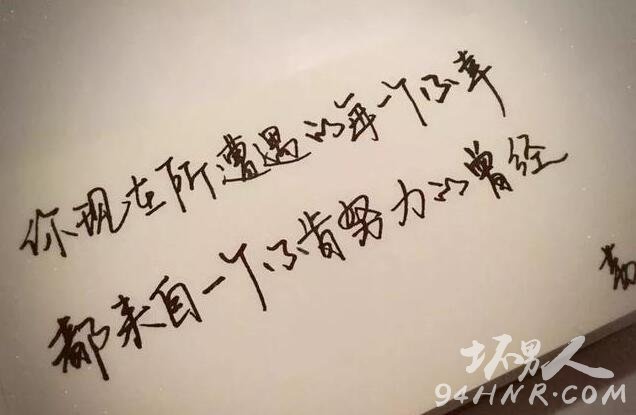 你现在所遭遇的每一个不幸
都来自一个不肯努力的曾经
坏男人
94HNR.COM